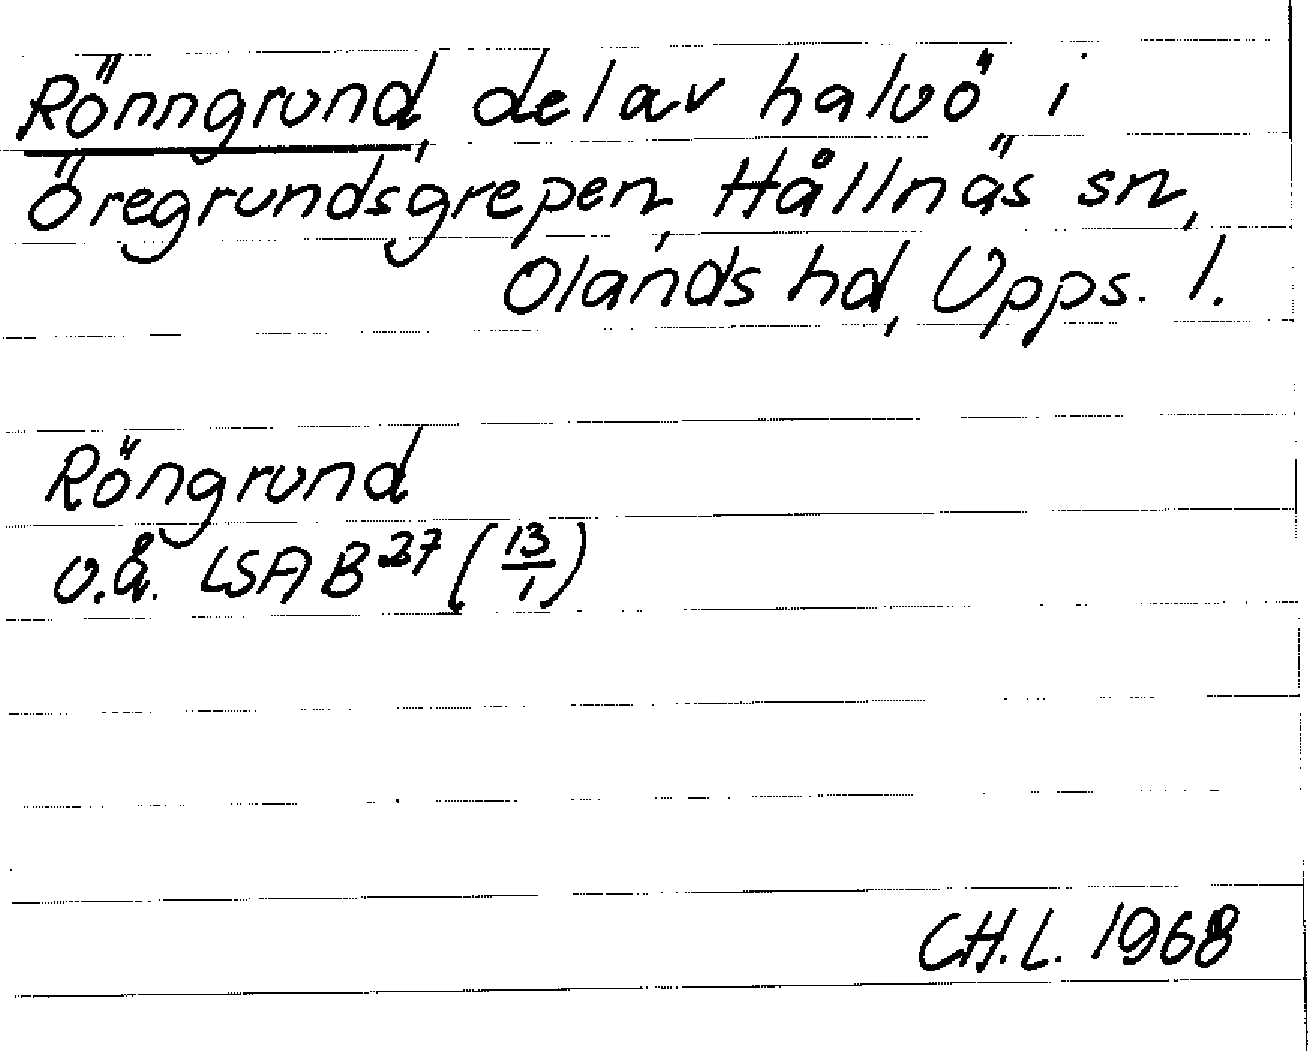 Rönngrund, del av halvö i
Öregrundsgrepen, Hållnäs sn,
Olands hd, Upps. l.
Röngrund
o.å. LSA B 27 (13/1)
CH.L. 1968